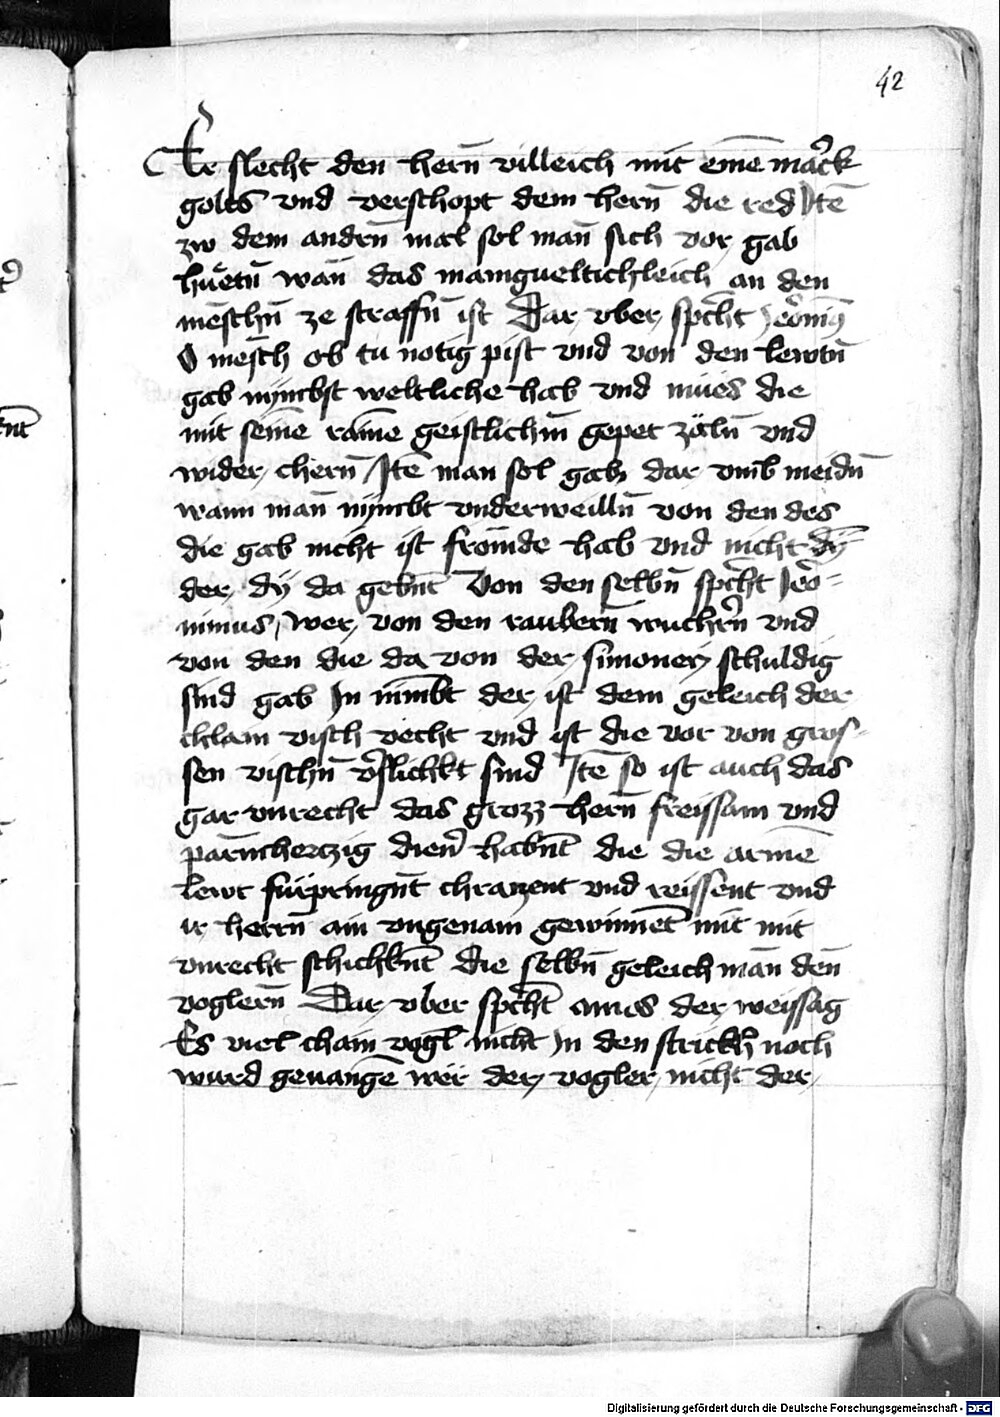 42
Er slecht den hern̄ villeich mit eine̅ ma̓rck
golts vnd verschopt dem hern̄ die red Ite̅
zw dem andrn̄ mal sol man̄ sich vor gab
hue̓tn̄ wan̄ das mainguelticlchleich an den
me̅schn̄ ze straffn̄ ist Dar vber spͨcht Jeronim9
O mesch ob tu notig pist vnd von den lewtn̄
gab nymbst weltliche hab vnd mues die
mit seine̅ raine̅ geistlichm̄ gepet zäln̄ vnd
wider chern̄ Ite̅ man sol gab dar vmb meidn̄
wann man̄ nymbt vnderweilln̄ von den des
die gab nicht ist fromde hab vnd nicht dy
der dy da gebn̄t Von den selbn̄ spͨcht Jero=
nimus, wer von den raubern̄ wuchr̓n̄ vnd
von den die da von der simoney schuldig
sind gab In nimbt der ist dem geleich der
chlain visch vecht vnd ist die vor von gros=
sen vischn̄ v̓slichkt sind Ite̅ so ist auch das
gar vnrecht das grozz hern̄ freissam vnd
parmhertzig dien̓ habn̄t die die arme̅
lewt fürpringn̄t chranzent vnd reissent vnd
ir herrn̄ ain vngenam gewinne̅t mit mit
vnrecht schichkn̄t die selbn̄ geleich man̄ den̄
voglern̄ Dar vber spͨcht amos der weissag
Es viel chain vogl nicht In den strickh̓ noch
wurd geuange̅ wër der vogler nicht der
Digitalisierung gefördert durch die Deutsche Forschungsgemeinschaft - DFG